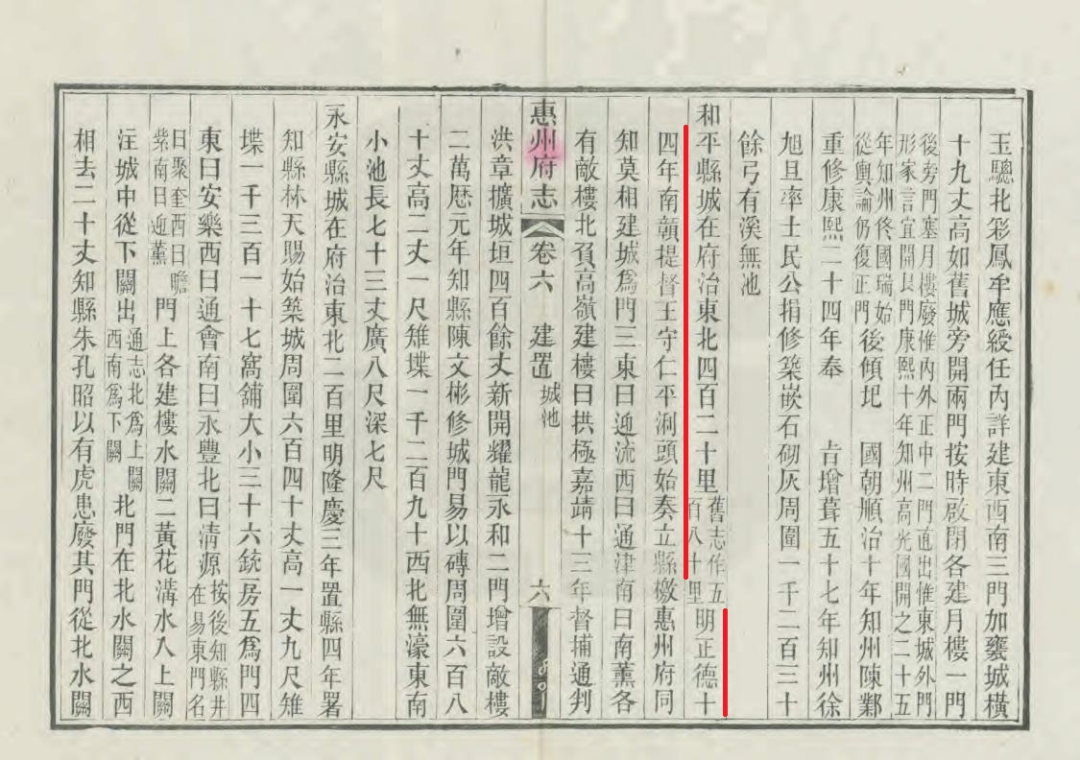 玉驄北彩鳳牟應綬任內詳建東西南三門加甕城橫
十九丈高如舊城旁開兩門按時啟閉各建月樓一門
後旁門塞月樓廢惟內外正中二門直出惟東城外門
形家言宜開艮門康熙十年知州高光國開之二十五
年知州佟國瑞始
從輿論仍復正門
後傾圮 國朝順治十年知州陳鄴
重修康熙二十四年奉 㫖增葺五十七年知州徐
旭旦率士民公捐修築嵌石砌灰周圍一千二百三十
餘弓有溪無池
和平縣城在府治東北四百二十里
舊志作五
百八十里
明正德十
四年南贛提督王守仁平浰頭始奏立縣檄惠州府同
知莫相建城爲門三東曰迎流西曰通津南曰南薰各
有敵樓北負高嶺建樓曰拱極嘉靖十三年督捕通判
惠州府志 卷六 建置 城池 六
洪章擴城垣四百餘丈新開耀龍永和二門增設敵樓
二萬厯元年知縣陳文彬修城門易以磚周圍六百八
十丈高二丈一尺雉堞一千二百九十西北無濠東南
小池長七十三丈廣八尺深七尺
永安縣城在府治東北二百里明隆慶三年置縣四年署
知縣林天賜始築城周圍六百四十丈高一丈九尺雉
堞一千三百一十七窩舖大小三十六銃房五爲門四
東曰安樂西曰通會南曰永豐北曰清源
按後知縣井
在易東門名
曰聚奎西曰瞻
紫南曰迎薰
門上各建樓水關二黃花溝水入上關
注城中從下關出
通志北爲上關
西南爲下關
北門在北水關之西
相去二十丈知縣朱孔昭以有虎患廢其門從北水關